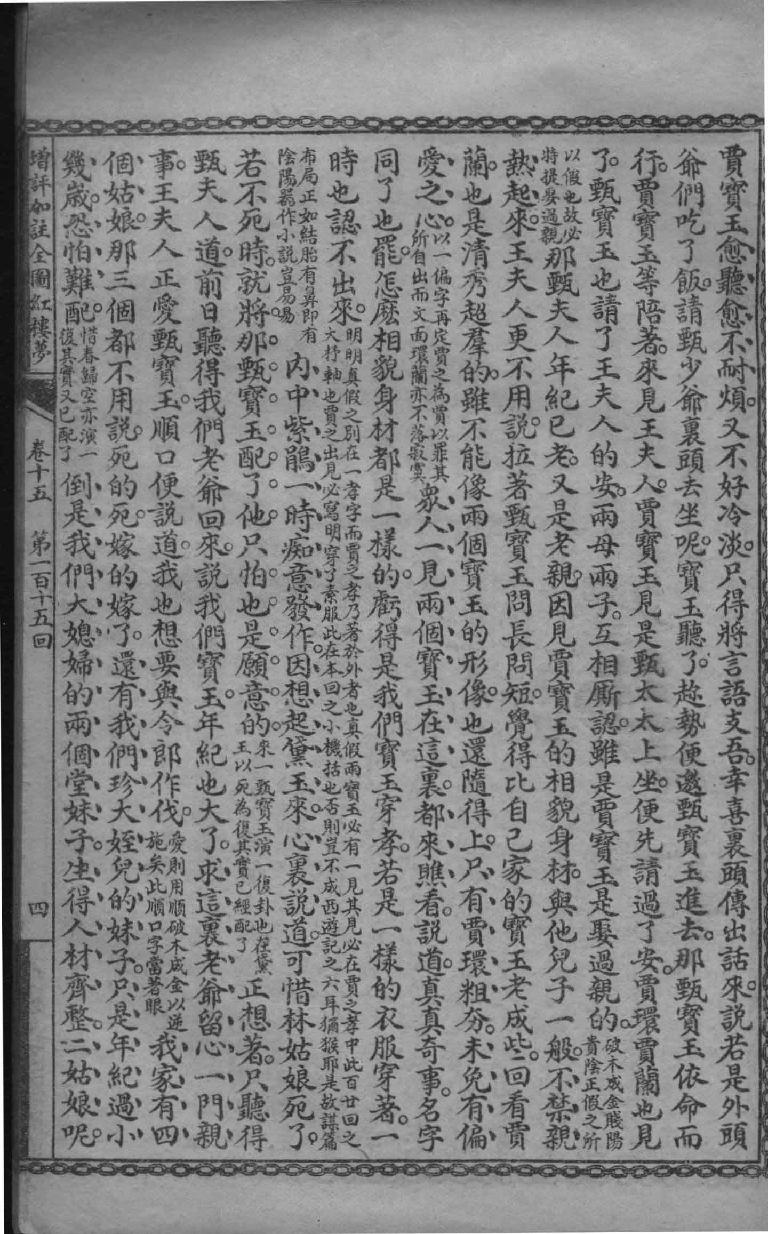 賈寶玉愈聽愈不耐煩。又不好冷淡。只得將言語支吾。幸喜裏頭傳出話來。說若是外頭
爺們吃了飯。請甄少爺裏頭去坐呢。寶玉聽了。趁勢便邀甄寶玉進去。那甄寶玉依命而
行。賈寶玉等陪著。來見王夫人。賈寶玉見是甄太太上坐。便先請過了安。賈環賈蘭也見
了。甄寶玉也請了王夫人的安。兩母兩子。互相厮認。雖是賈寶玉是娶過親的。破木成金賤陽貴陰正假之所
以假也故必特提娶過親那甄夫人年紀已老。又是老親。因見賈寶玉的相貌身材。與他兒子一般。不禁親
熱起來。王夫人更不用說。拉著甄寶玉問長問短。覺得比自己家的寶玉老成些。回看賈
蘭。也是清秀超羣的。雖不能像兩個寶玉的形像。也還隨得上。只有賈環粗夯。未免有偏
愛之心。以一偏字再定賈之為賈以罪其所自出而文面環蘭亦不落寂寞衆人一見兩個寶玉在這裏。都來瞧看。說道。真真奇事。名字
同了也罷。怎麽相貌身材都是一樣的。虧得是我們寶玉穿孝。若是一樣的衣服穿著。一
時也認不出來。明明真假之別在一孝字而賈之孝乃著於外者也真假兩寶玉必有一見其見必在賈之孝中此百廿回之大抒軸也賈之出見必寫明穿了素服此在本回之小機括也否則豈不成西遊記之六耳獼猴耶是故謀篇
布局正如結胎有鼻即有陰陽器作小説豈易易內中紫鵑一時痴意發作。因想起黛玉來。心裏說道。可惜林姑娘死了。
若不死時。就將那甄寶玉配了他。只怕也是願意的。來一甄寶玉演一復卦也在黛玉以死為復其實已經配了正想著。只聽得
甄夫人道。前日聽得我們老爺回來說。我們寶玉年紀也大了。求這裏老爺留心一門親
事。王夫人正愛甄寶玉。順口便說道。我也想要與令郎作伐。愛則用順破木成金以逆施矣此順口字當著眼我家有四
個姑娘。那三個都不用說。死的死。嫁的嫁了。還有我們珍大姪兒的妹子。只是年紀過小
幾歲。恐怕難配。惜春歸空亦演一復其實又已配了倒是我們大媳婦的兩個堂妹子。生得人材齊整。二姑娘呢。
增評加註全圖紅樓夢 卷十五 第一百十五回 四